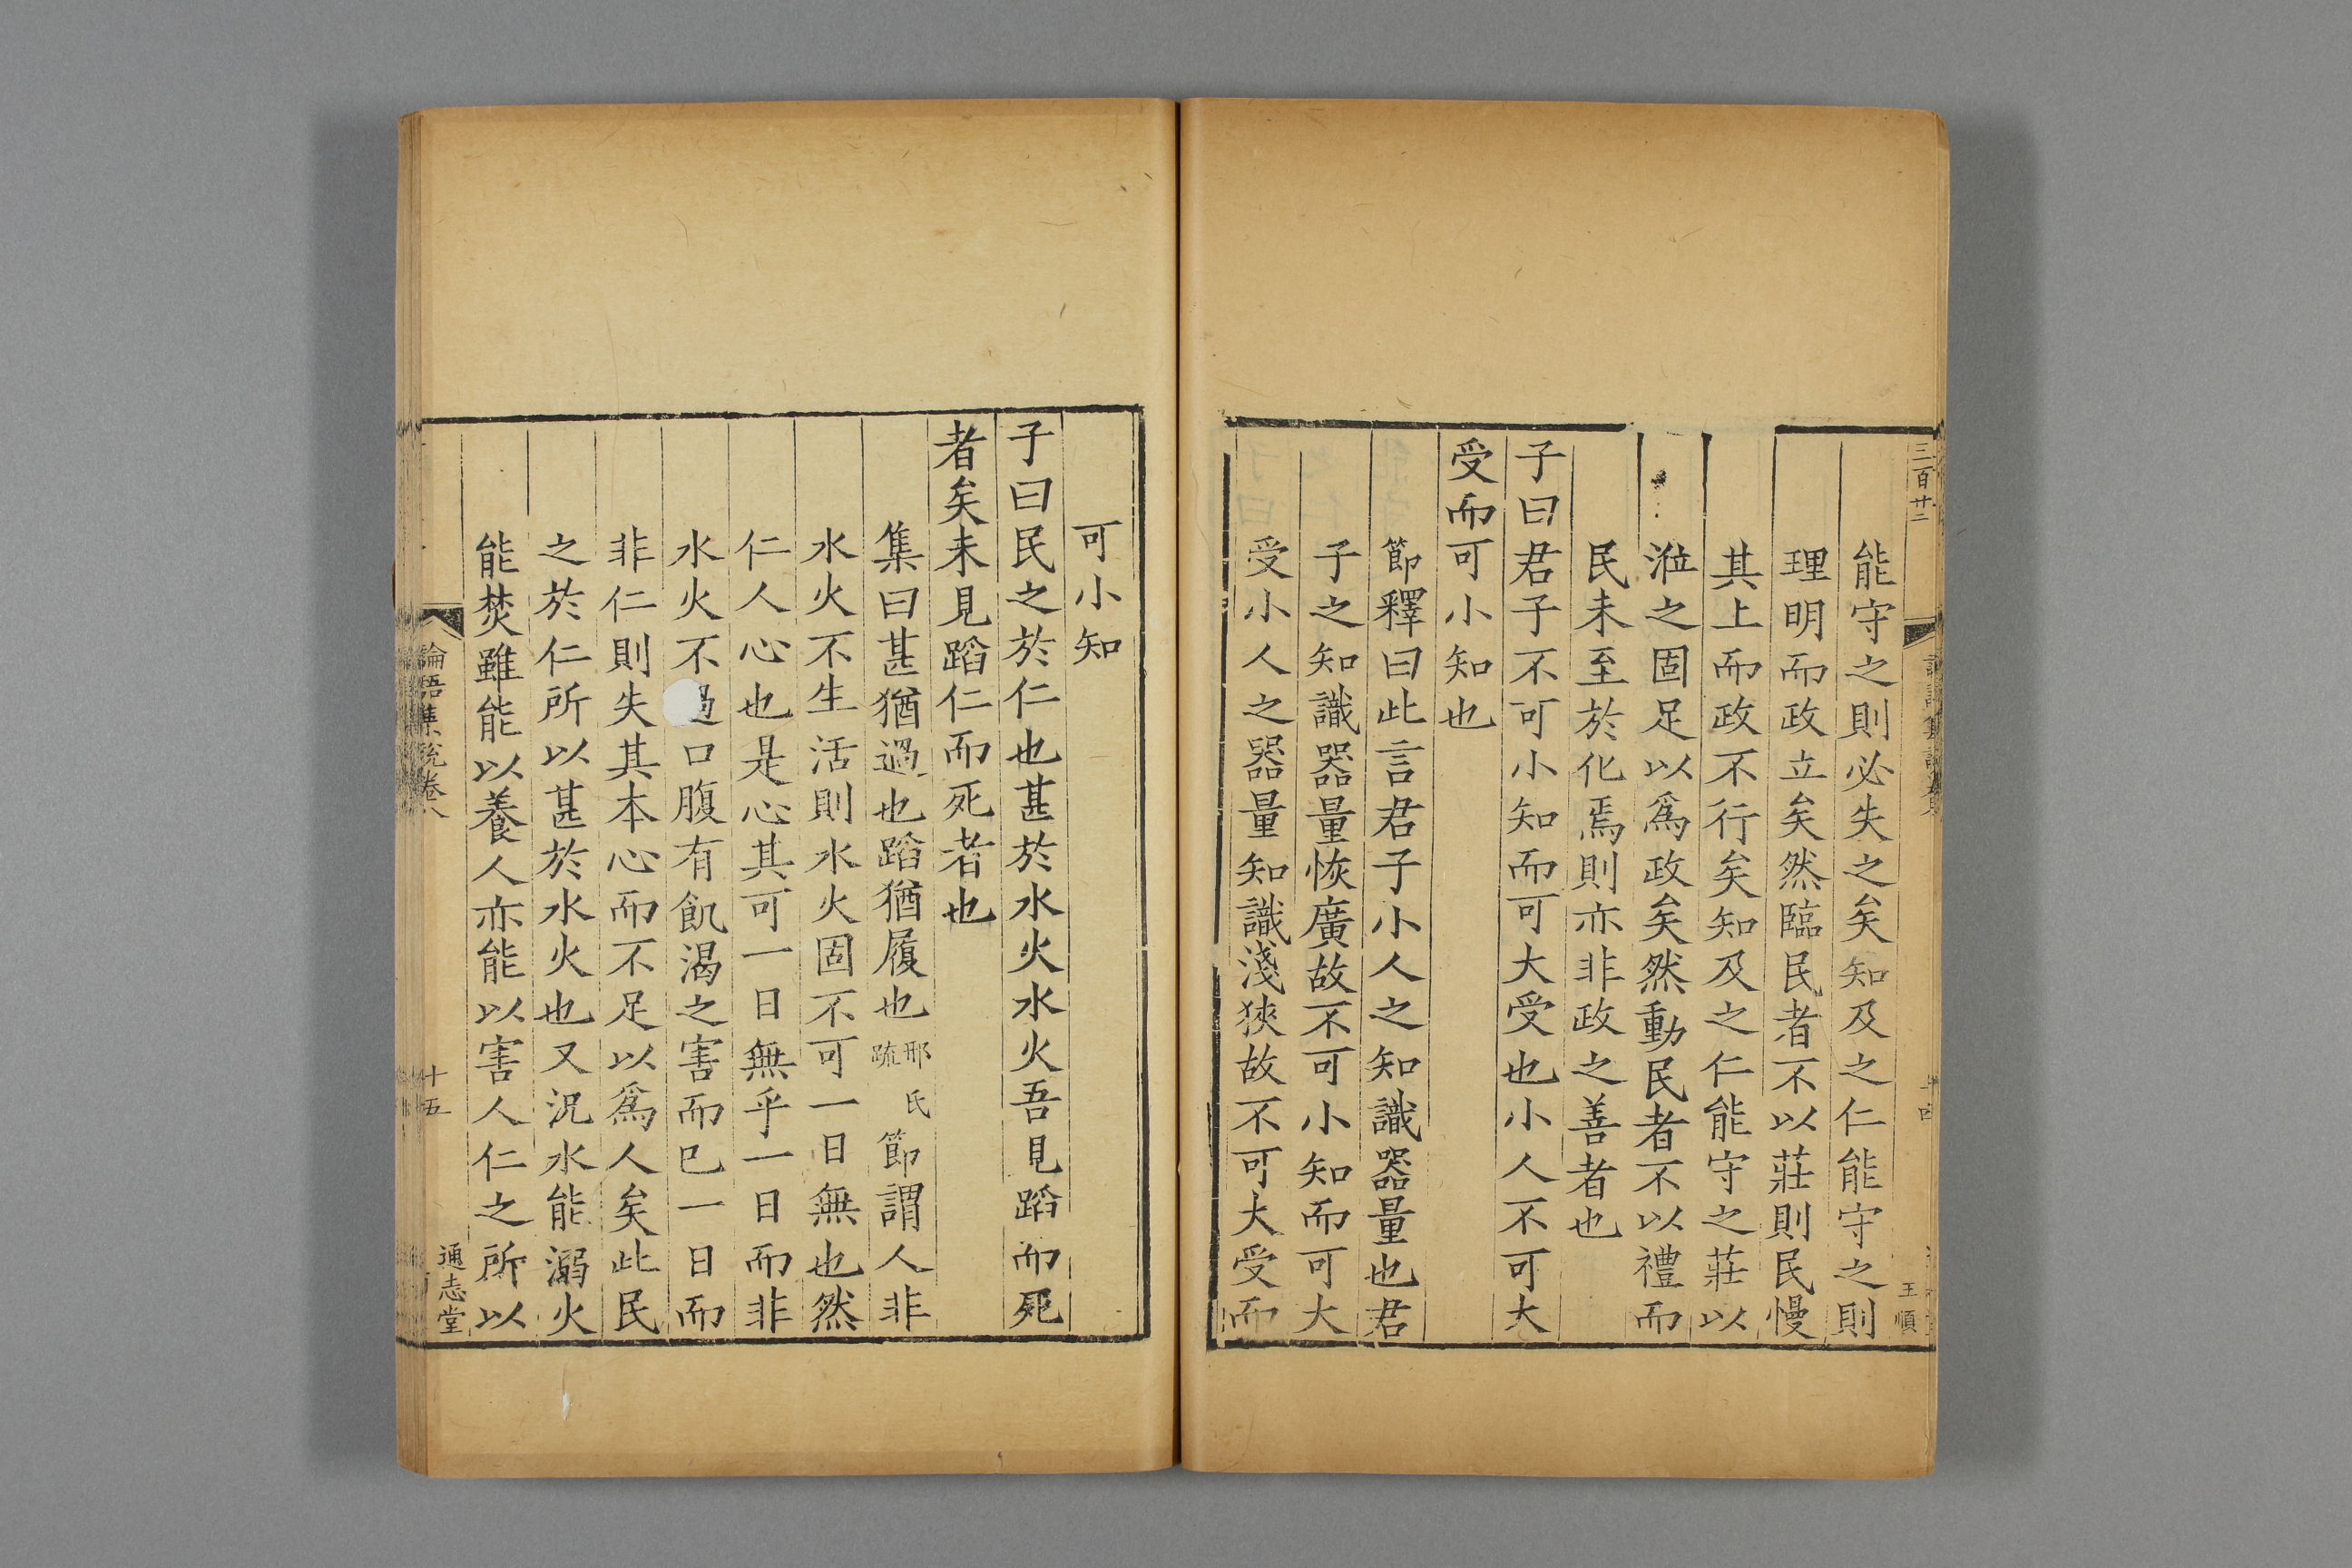 三百廿二
王順
能守之則必失之矣知及之仁能守之則
理明而政立矣然臨民者不以莊則民慢
其上而政不行矣知及之仁能守之莊以
涖之固足以為政矣然動民者不以禮而
民未至於化焉則亦非政之善者也
子曰君子不可小知而可大受也小人不可大
受而可小知也
節釋曰此言君子小人之知識器量也君
子之知識器量恢廣故不可小知而可大
受小人之器量知識淺狹故不可大受而
可小知
子曰民之於仁也甚於水火水火吾見蹈而死
者矣未見蹈仁而死者也
集曰甚猶過也蹈猶履也邢氏疏節謂人非
水火不生活則水火固不可一日無也然
仁人心也是心其可一日無乎一日而非
水火不過口腹有飢渴之害而已一日而
非仁則失其本心而不足以為人矣此民
之於仁所以甚於水火也又況水能溺火
能焚雖能以養人亦能以害人仁之所以
論語集說卷八
十五
通志堂